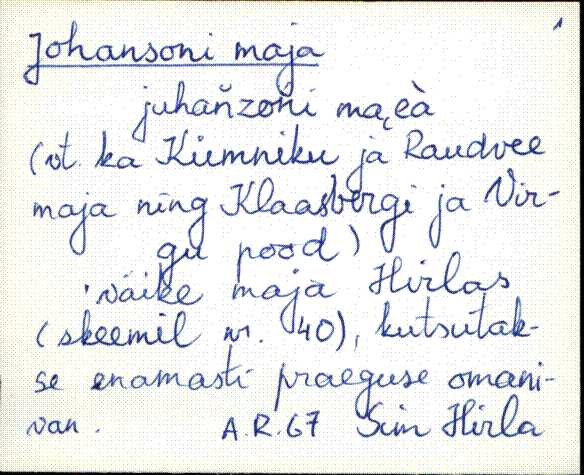 1
Johansoni maja
juhaňzoni ma͔eà
(vt. ka Kümniku ja Raudvee
maja ning Klaasbergi ja Vir-
gu pood)
väike maja Hirlas
(skeemil nr. 40), kutsutak-
se enamasti praeguse omani-
van. A.R.67 Sim Hirla